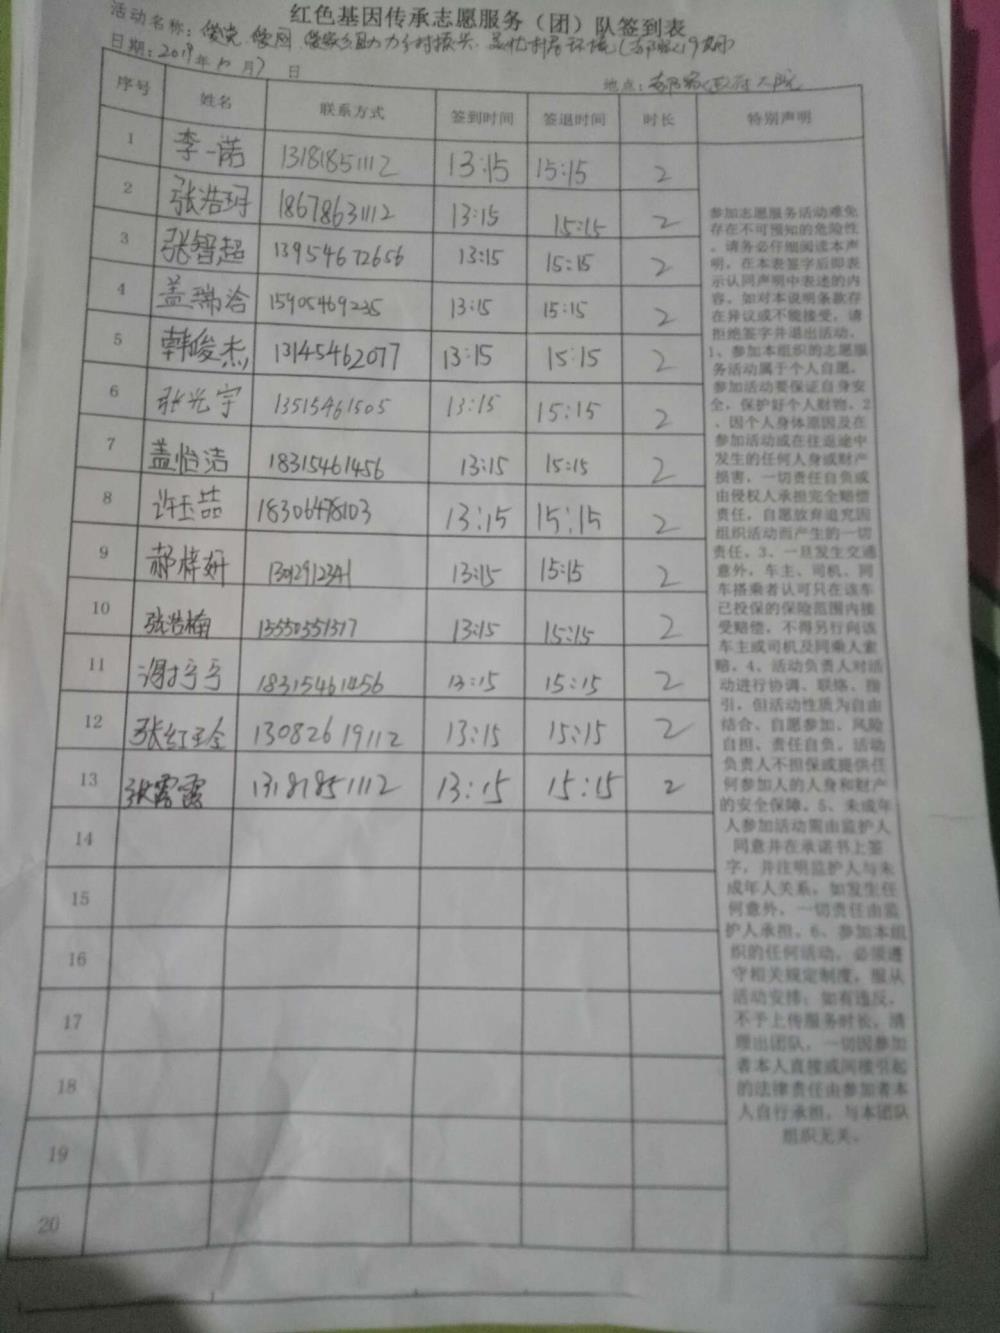 红色基因传承志愿服务（团）队签到表
活动名称：爱党、爱国、爱家乡
日期：2019年10月7日
地点：
序号 姓名 联系方式 签到时间 签退时间 时长 特别声明
1 李一诺 13181851112 13:15 15:15 2
2 张浩玥 18678631112 13:15 15:15 2
3 张智超 13954672656 13:15 15:15 2
4 盖瑞洽 15905469235 13:15 15:15 2
5 韩俊杰 13145462077 13:15 15:15 2
6 张光宇 13515461505 13:15 15:15 2
7 盖怡洁 18315461456 13:15 15:15 2
8 许玉喆 18306478103 13:15 15:15 2
9 郝梓妍 13012912341 13:15 15:15 2
10 张浩楠 15550551517 13:15 15:15 2
11 18315461456 13:15 15:15 2
12 张红全 13082619112 13:15 15:15 2
13 张露露 13181851112 13:15 15:15 2
14
15
16
17
18
19
20
参加志愿服务活动难免
存在不可预知的危险性
，请务必仔细阅读本声
明，在本表签字后即表
示认同声明中表述的内
容。如对本说明条款存
在异议或不能接受，请
拒绝签字并退出活动。
1、参加本组织的志愿服
务活动属于个人自愿。
参加活动要保证自身安
全，保护好个人财物。2
、因个人身体原因及在
参加活动或在往返途中
发生的任何人身或财产
损害，一切责任自负或
由侵权人承担完全赔偿
责任，自愿放弃追究因
组织活动而产生的一切
责任。3、一旦发生交通
意外，车主、司机、同
车搭乘者认可只在该车
已投保的保险范围内接
受赔偿，不得另行向该
车主或司机及同乘人索
赔。4、活动负责人对活
动进行协调、联络、指
引，但活动性质为自由
结合、自愿参加、风险
自担、责任自负。活动
负责人不担保或提供任
何参加人的人身和财产
的安全保障。5、未成年
人参加活动需由监护人
同意并在承诺书上签
字，并注明监护人与未
成年人关系，如发生任
何意外，一切责任由监
护人承担。6、参加本组
织的任何活动，必须遵
守相关规定制度，服从
活动安排；如有违反，
不予上传服务时长，清
理出团队，一切因参加
者本人直接或间接引起
的法律责任由参加者本
人自行承担，与本团队
组织无关。